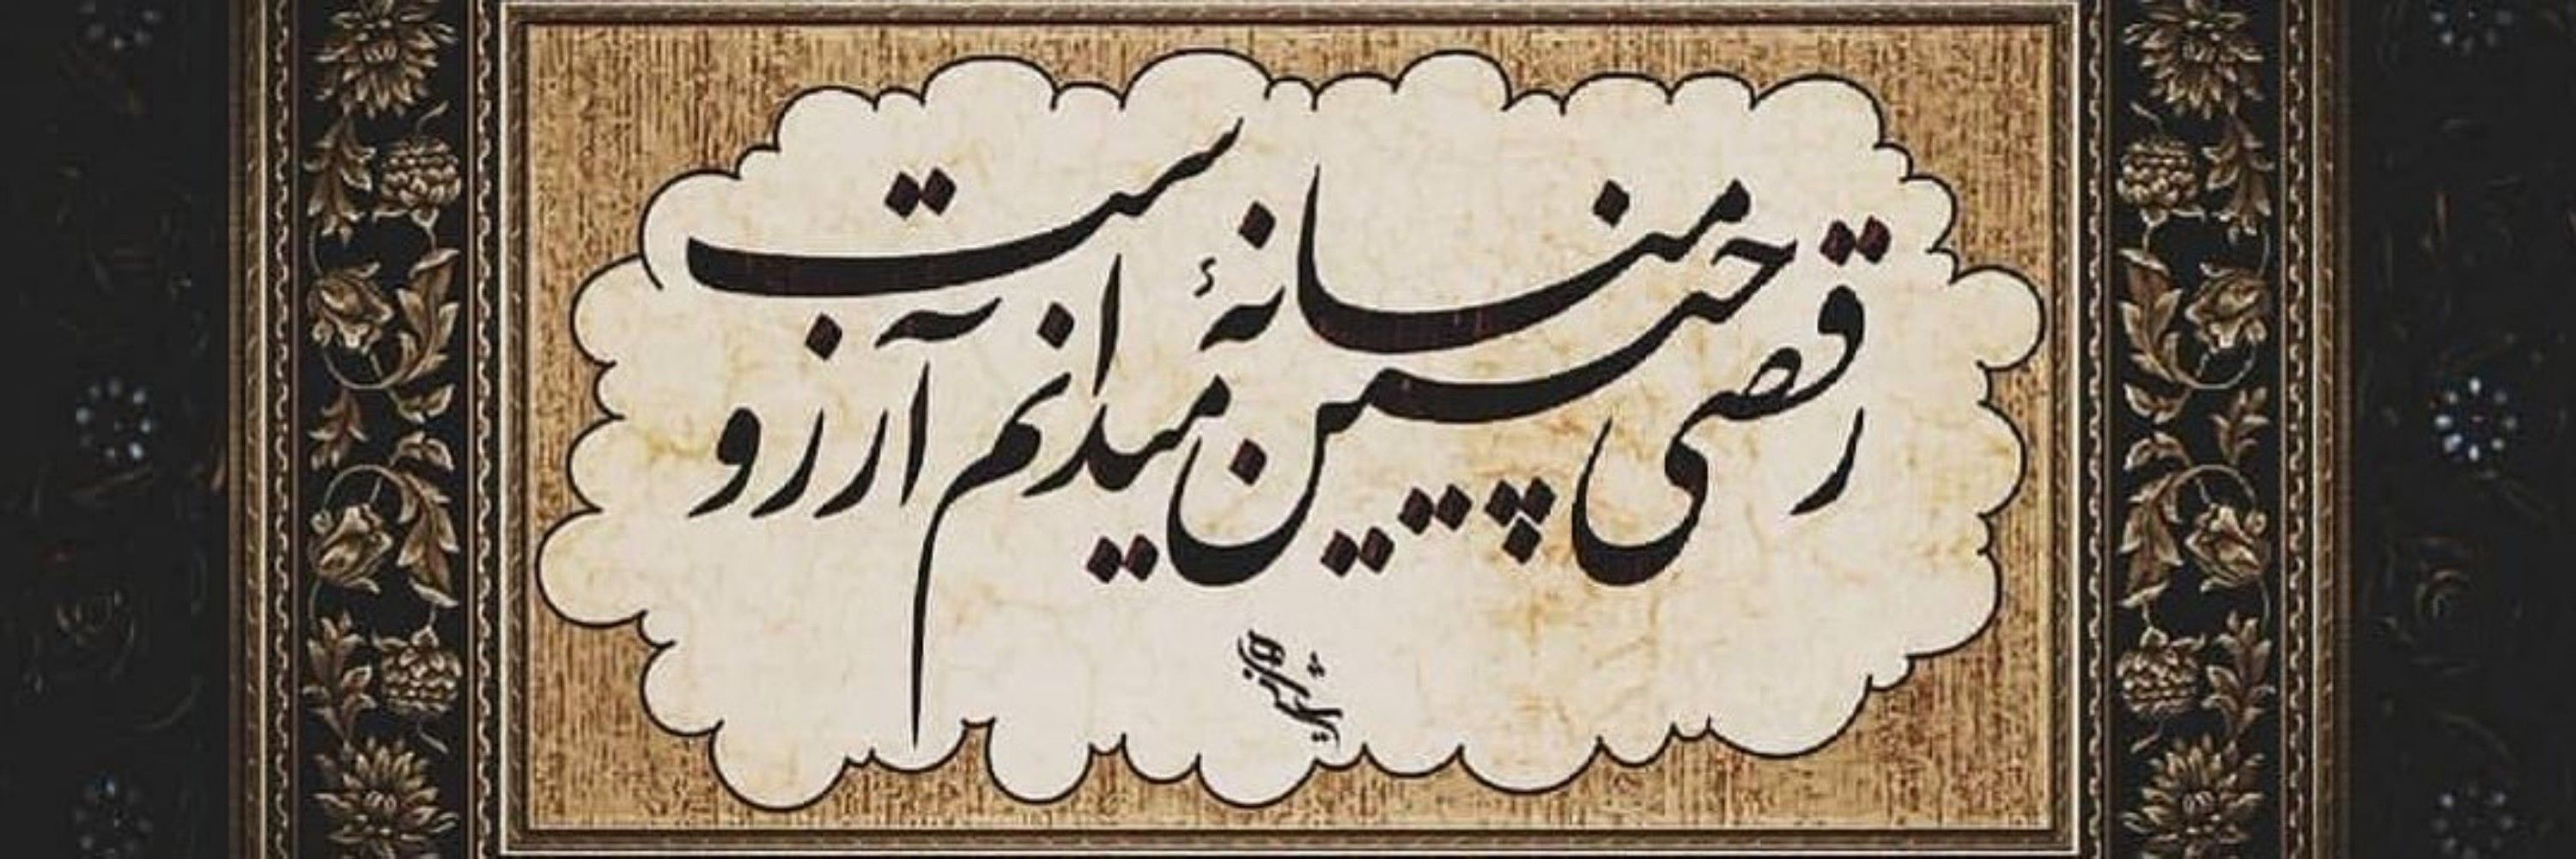 رقصی چنین میانهٔ میدانم آرزوست